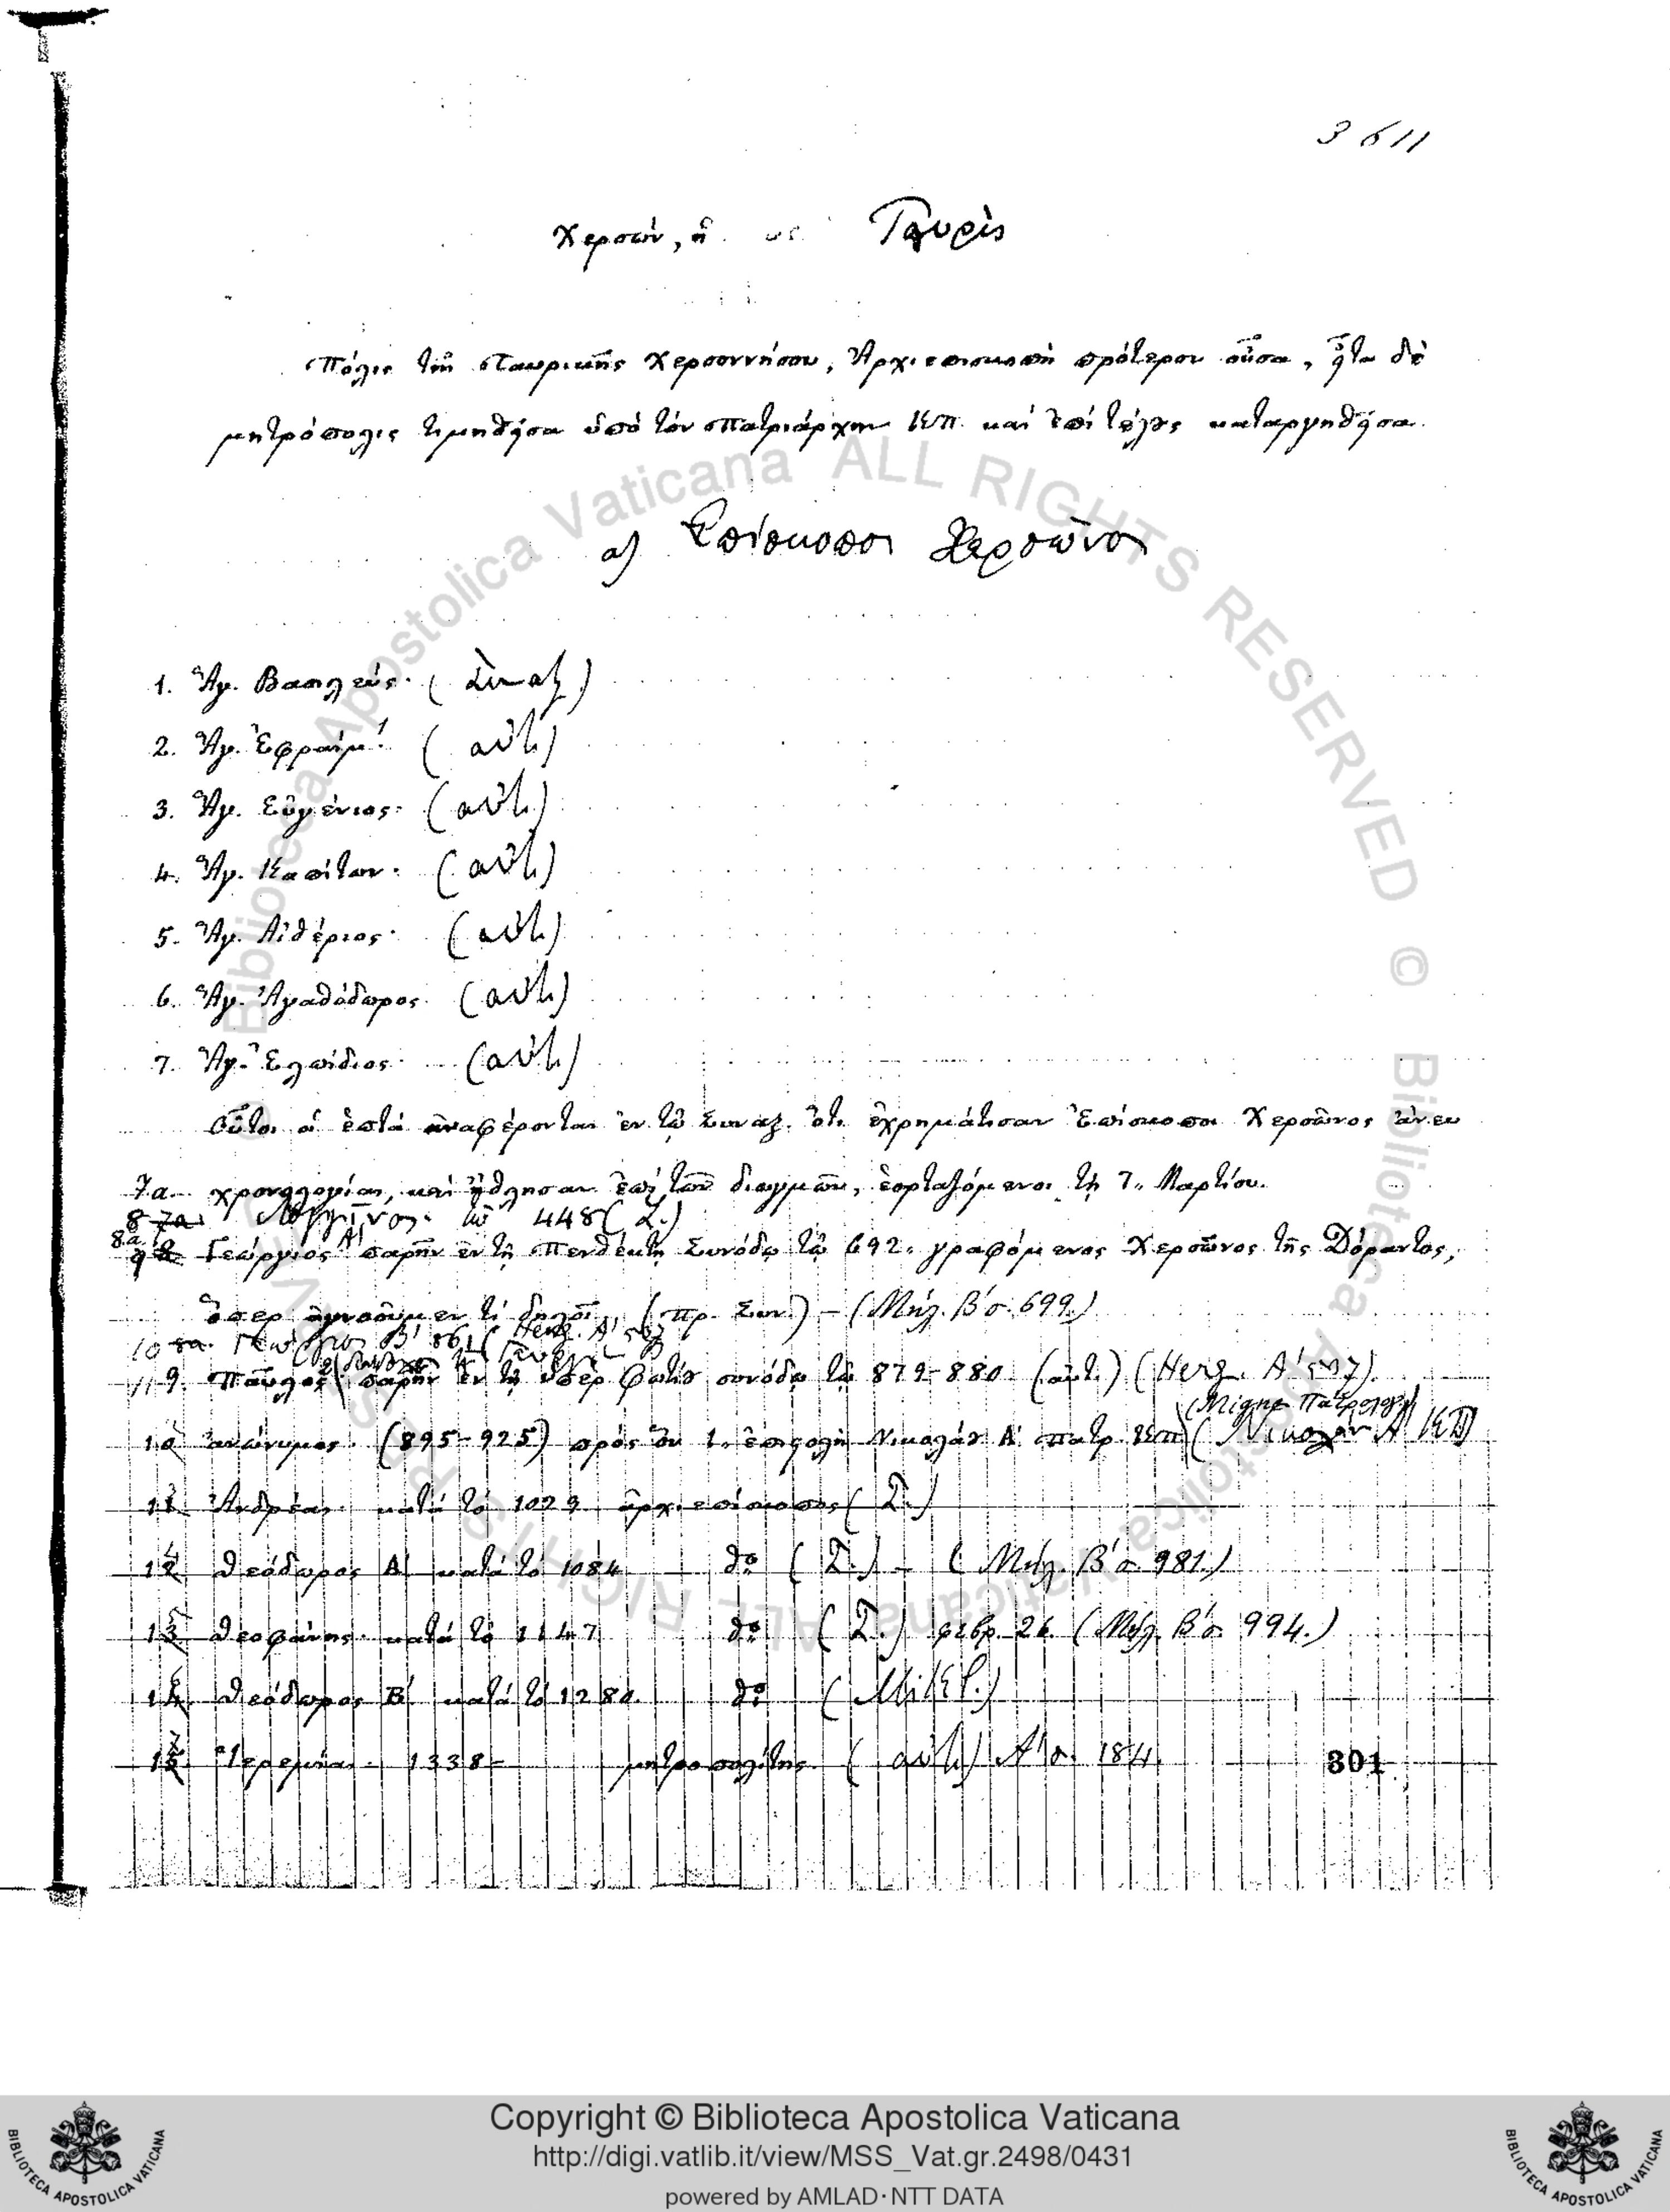 3611
Χερσών, ἢ Ταυρὶς
Πόλις τῆς Ταυρικῆς Χερσοννήσου, Ἀρχιεπισκοπὴ πρότερον οὖσα, εἶτα δὲ
μητρόπολις τιμηθεῖσα ὑπὸ τὸν Πατριάρχην ΚΠ. καὶ ἐπὶ τέλους καταργηθεῖσα.
α) Ἐπίσκοποι Χερσῶνος
1. Ἅγ. Βασιλεύς. (Συναξ)
2. Ἅγ. Ἐφραίμ. (αὐτ.)
3. Ἅγ. Εὐγένιος. (αὐτ.)
4. Ἅγ. Καπίτων. (αὐτ.)
5. Ἅγ. Αἰθέριος. (αὐτ.)
6. Ἅγ. Ἀγαθόδωρος. (αὐτ.)
7. Ἅγ. Ἐλπίδιος. (αὐτ.)
Οὗτοι οἱ ἑπτὰ ἀναφέρονται ἐν τῷ Συναξ. ὅτι ἐχρημάτισαν Ἐπίσκοποι Χερσῶνος ἄνευ
7α χρονολογίας, καὶ ἤθλησαν ἐπὶ τῶν διωγμῶν, ἑορταζόμενοι τῇ 7. Μαρτίου.
8 7α. Λογγῖνος. τῷ 448 (Σ.)
8α. Γεώργιος Α' παρῆν ἐν τῇ Πενθέκτῃ Συνόδῳ τῷ 692. γραφόμενος Χερσῶνος τῆς Δόραντος,
ὅπερ ἀγνοοῦμεν τί δηλοῖ. (πρ. Συν.) – (Μελ. Β' σ. 699.)
10 8α. Γεώργιος Β' 861 (Herg. Α'
11 9. Παῦλος παρῆν ἐν τῇ ὑπὲρ Φωτίου συνόδῳ τῷ 879-880 (αὐτ.) (Herg. Α'
(Migne Πατρολογ.
10 ἀνώνυμος. (895-925) πρὸς ὃν 1. ἐπιστολὴ Νικολάου Α' πατρ. ΚΠ (Νικολάου Α' ΚΠ)
11 Ἀνδρέας. κατὰ τὸ 1029 ἀρχιεπίσκοπος (Σ.)
12 Θεόδωρος Α' κατὰ τὸ 1084 δο (Σ.) – (Μελ. Β' σ. 981.)
13 Θεοφάνης. κατὰ τὸ 1147 δο (Σ.) φεβρ. 26 (Μελ. Β' σ. 994.)
14 Θεόδωρος Β' κατὰ τὸ 1280. δο (Μικλ.)
15 Ἱερεμίας. 1338- μητροπολίτης (αὐτ.) Α' σ. 184.
301
Copyright © Biblioteca Apostolica Vaticana
http://digi.vatlib.it/view/MSS_Vat.gr.2498/0431
powered by AMLAD·NTT DATA
BIBLIOTECA APOSTOLICA VATICANA
BIBLIOTECA APOSTOLICA VATICANA
© Biblioteca Apostolica Vaticana ALL RIGHTS RESERVED © Biblioteca Apostolica Vaticana ALL RIGHTS RESERVED